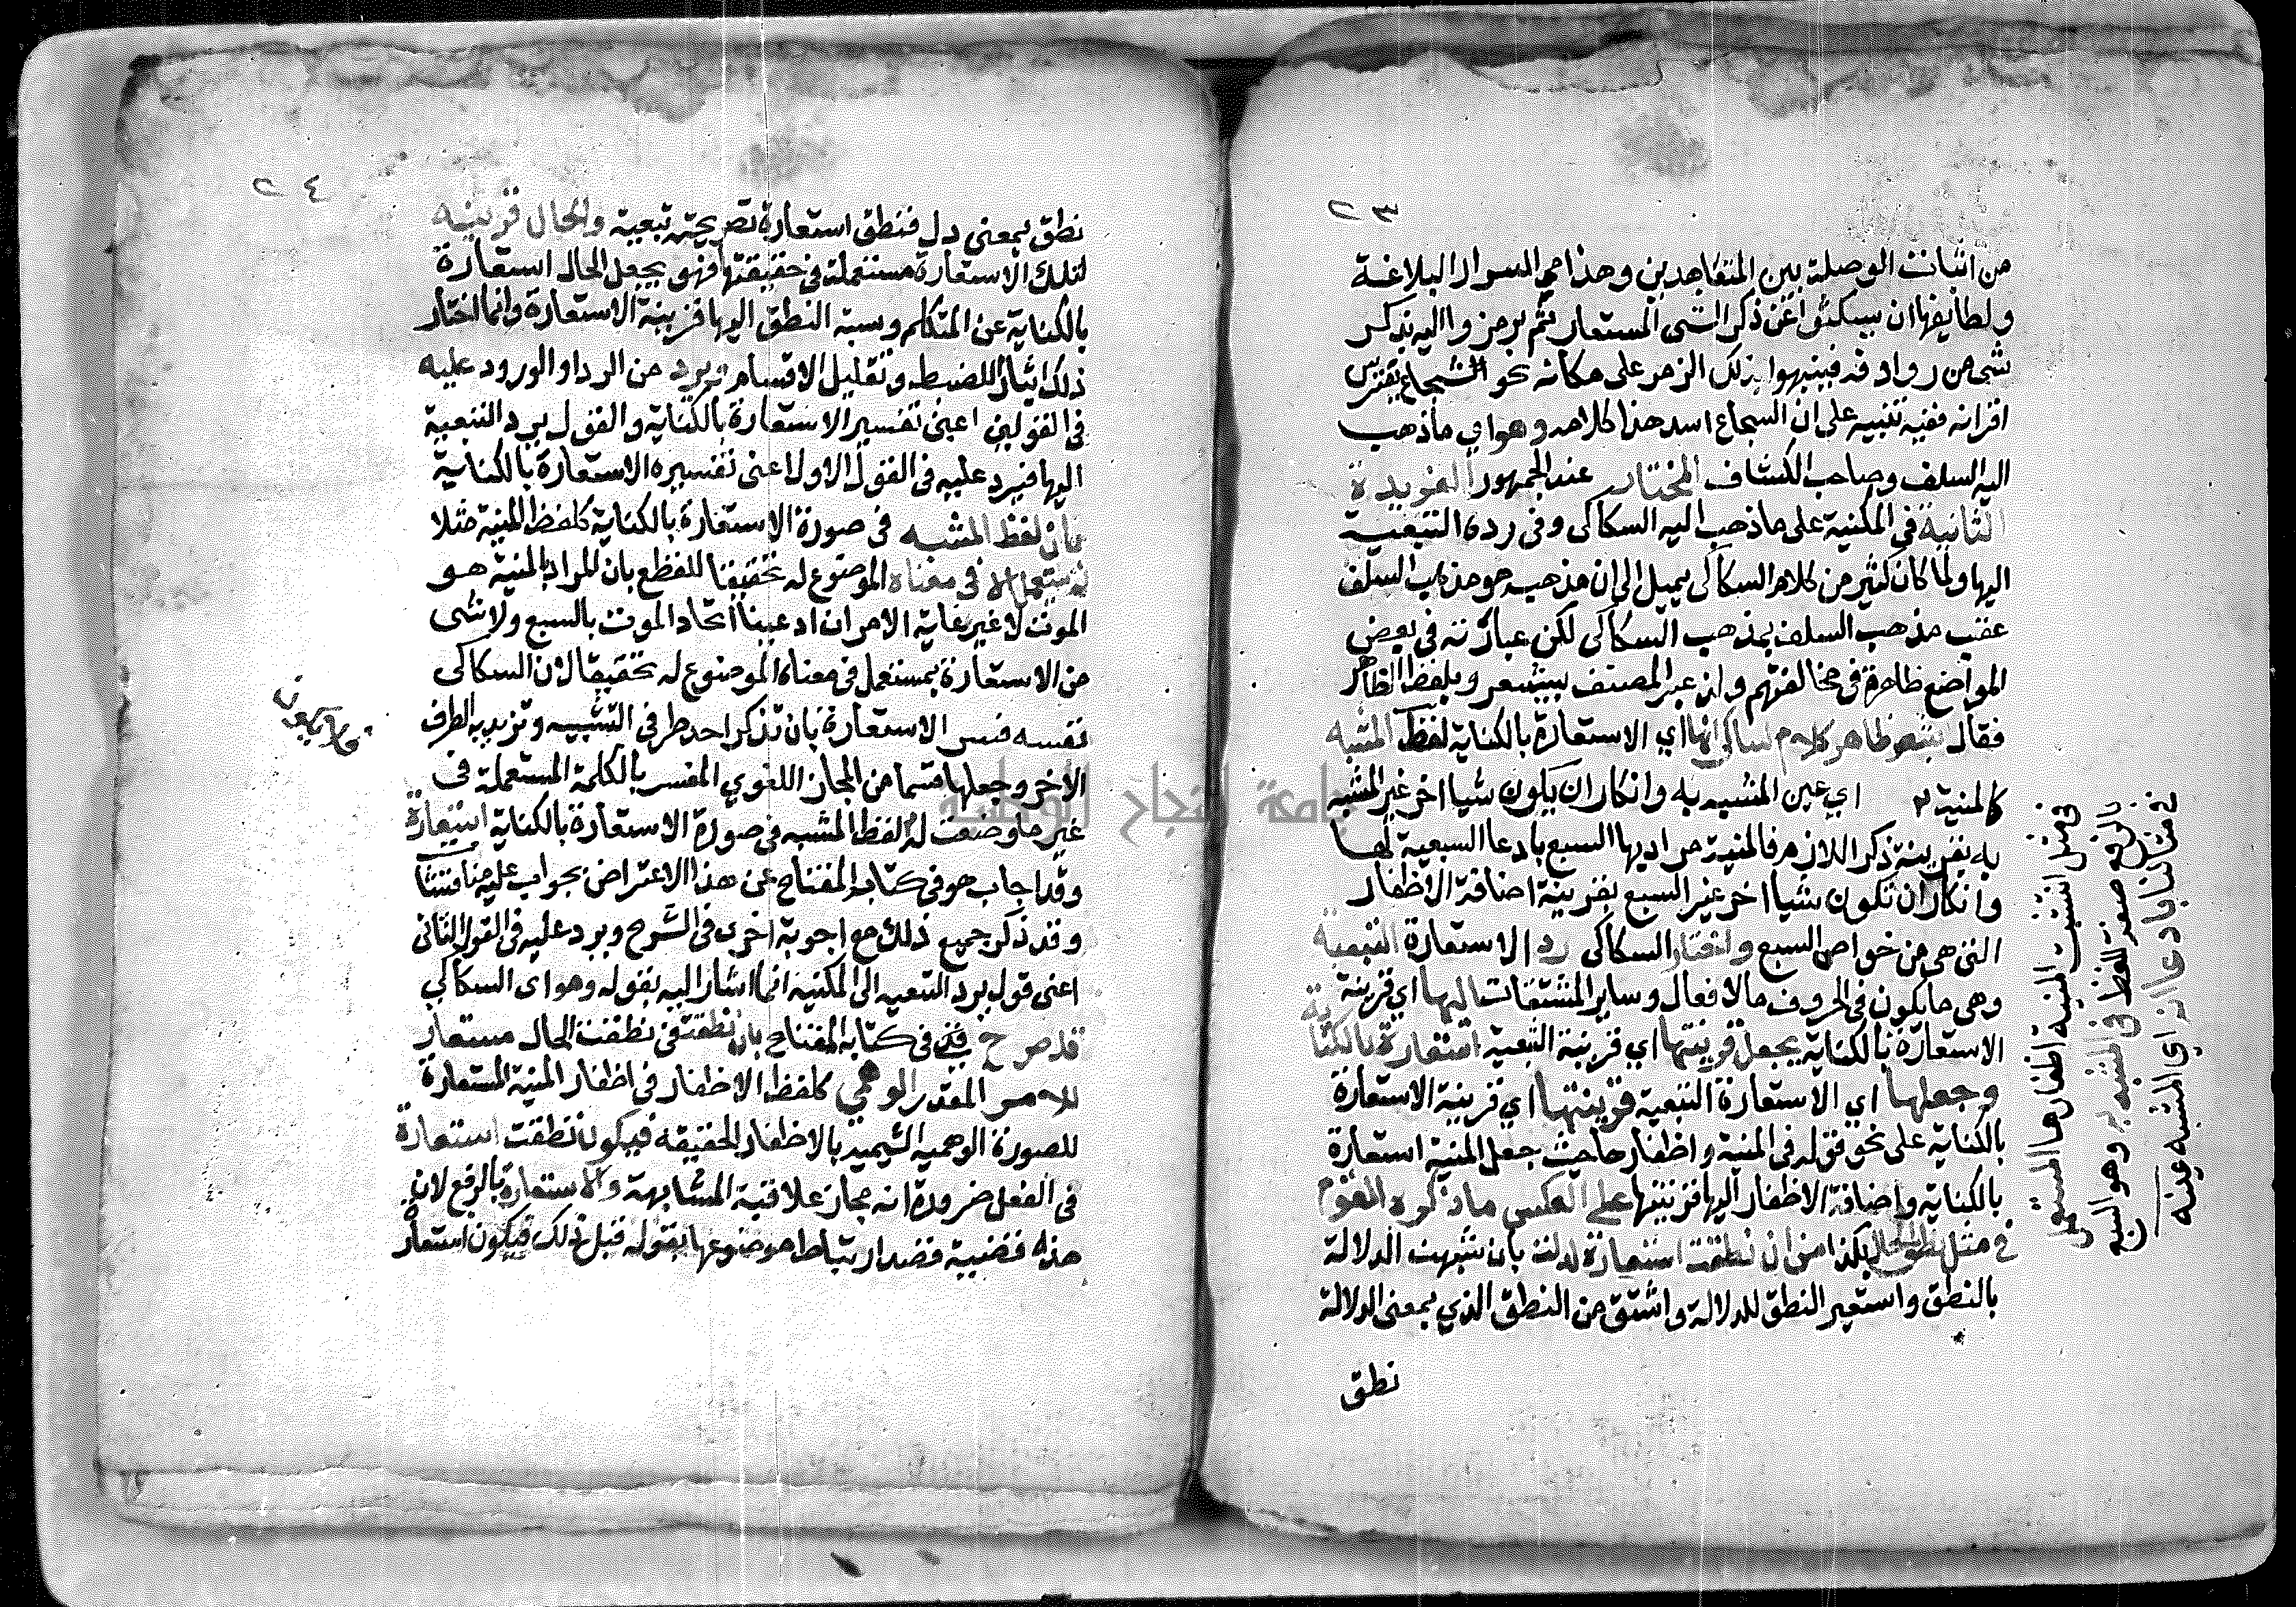 ٢٣
من اثبات الوصلة بين المتعاهدين وهذا من اسرار البلاغة
ولطايفها ان يسكتوا عن ذكر الشى المستعار ثم يرمزوا اليه بذكر
شى من روادفه فينبهوا بذلك الرمز على مكانه نحو الشجاع يفترس
اقرانه ففيه تنبيه على ان الشجاع اسد هذا كلامه وهو اي ما ذهب
اليه السلف وصاحب الكشاف المختار عند الجمهور الفريدة
الثانية في المكنية على ما ذهب اليه السكاكى وفى رده التبعية
اليها ولما كان كثير من كلام السكاكى يميل الى ان مذهبه هو مذهب السلف
عقب مذهب السلف بمذهب السكاكى لكن عبارته في بعض
المواضع ظاهرة في مخالفتهم ولذ عبر المصنف بيشعر وبلفظ الظاهر
فقال يشعر ظاهر كلام السكاكى انها اي الاستعارة بالكناية لفظ المشبه
كالمنية اي عين المشبه به وانكار ان يكون شيا اخر غير المشبه
به بقرينة ذكر اللازم فالمنية مراد بها السبع بادعا السبعية لها
وانكار ان تكون شيا اخر غير السبع بقرينة اضافة الاظفار
التى هى من خواص السبع واختار السكاكى رد الاستعارة التبعية
وهى ما يكون في الحروف والافعال وساير المشتقات اليها اي قرينة
الاستعارة بالكناية بجعل قرينتها اي قرينة التبعية استعارة بالكناية
وجعلها اي الاستعارة التبعية قرينتها اي قرينة الاستعارة
بالكناية على نحو قوله فى المنية واظفارها حيث جعل المنية استعارة
بالكناية واضافة الاظفار اليها قرينتها على العكس ما ذكره القوم
في مثل نطقت الحال بكذا من ان نطقت استعارة لدلت بان شبهت الدلالة
بالنطق واستعير النطق للدلالة واشتق من النطق الذي بمعنى الدلالة
نطق
في مثل انشبت المنية اظفارها المستعمل
بالرفع صفة للفظ في المشبه به وهو السبع
في مثلنا بادعا انه اي المشبه عينه
٢٤
نطق بمعنى دل فنطق استعارة تصريحية تبعية والحال قرينة
لتلك الاستعارة مستعملة في حقيقتها فهو يجعل الحال استعارة
بالكناية عن المتكلم ونسبة النطق اليها قرينة الاستعارة وانما اختار
ذلك ايثارا للضبط وتقليل الاقسام من الرد او الورود عليه
فى القولين اعنى تفسير الاستعارة بالكناية والقول برد التبعية
اليها فيرد عليه فى القول الاول اعنى تفسيره الاستعارة بالكناية
بان لفظ المشبه فى صورة الاستعارة بالكناية كلفظ المنية مثلا
لم يستعمل الا فى معناه الموضوع له تحقيقا للقطع بان المراد بالمنية هو
الموت لا غير غاية الامر ان ادعينا اتحاد الموت بالسبع ولا شى
من الاستعارة بمستعمل فى معناه الموضوع له تحقيقا لان السكاكى
نفسه فسر الاستعارة بان تذكر احد طرفي التشبيه وتريد به الطرف
الاخر وجعلها قسما من المجاز اللغوي المفسر بالكلمة المستعملة فى
غير ما وضعت له لفظ المشبه فى صورة الاستعارة بالكناية استعارة
وقد اجاب هو فى كتابه المفتاح عن هذا الاعتراض بجواب عليه مناقشة
وقد ذكر جميع ذلك مع اجوبة اخرى فى الشرح ويرد عليه فى القول الثانى
اعنى قول برد التبعية الى المكنية انما اشار اليه بقوله وهو اى السكاكي
قد صرح فى كتابه المفتاح بان نطقت فى نطقت الحال مستعار
للامر المقدر الوهمي كلفظ الاظفار فى اظفار المنية المستعارة
للصورة الوهمية الشبيهة بالاظفار الحقيقة فيكون نطقت استعارة
فى الفعل ضرورة انه مجاز علاقته المشابهة والاستعارة بالرفع لان
هذه قضية قصد ارتباط موضوعها بقوله قبل ذلك فيكون استعار
جامعة النجاح الوطنية